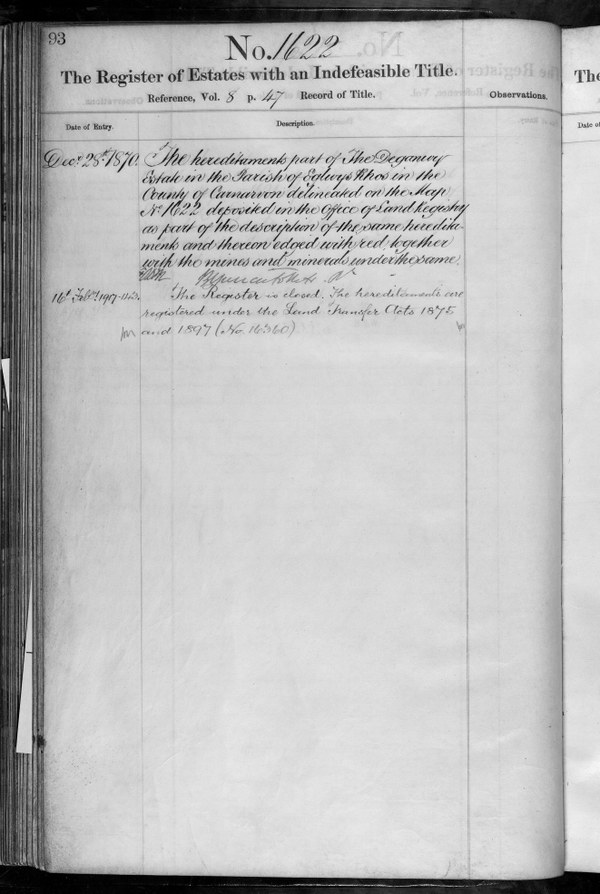 93
No. 1622
The Register of Estates with an Indefeasible Title.
Reference, Vol. 8 p. 47 Record of Title.
Observations.
Date of Entry.
Description.
Decr. 28th 1870. The hereditaments part of The Deganwy
Estate in the Parish of Eglwys Rhos in the
County of Carnarvon delineated on the Map
No. 1622 deposited in the Office of Land Registry
as part of the description of the same heredita-
ments and thereon edged with red together
with the mines and minerals under the same.
16th Feby. 1907 The Register is closed. The hereditaments are
registered under the Land Transfer Acts 1875
and 1897 (No. 16360)
The
Date of